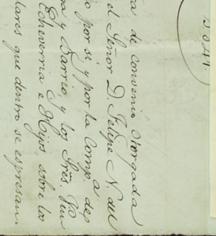 5041.
ra de convenio otorgada
el Señor D. Felipe N. del
o por si y por la Comp.a de
na y Barrio y los Srês. Viu
Echeverria e Hijos sobre los
lares que dentro se espresan.